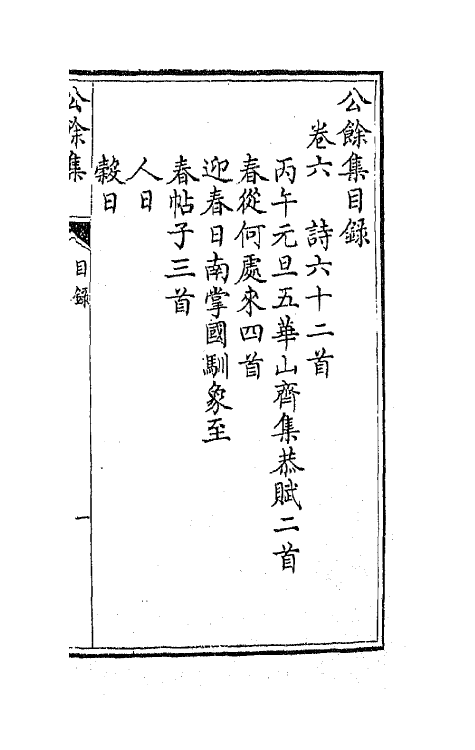 公餘集目録
卷六　詩六十二首
丙午元旦五華山齊集恭賦二首
春從何處來四首
迎春日南掌國馴象至
春帖子三首
人日
穀日
公餘集　目録　一